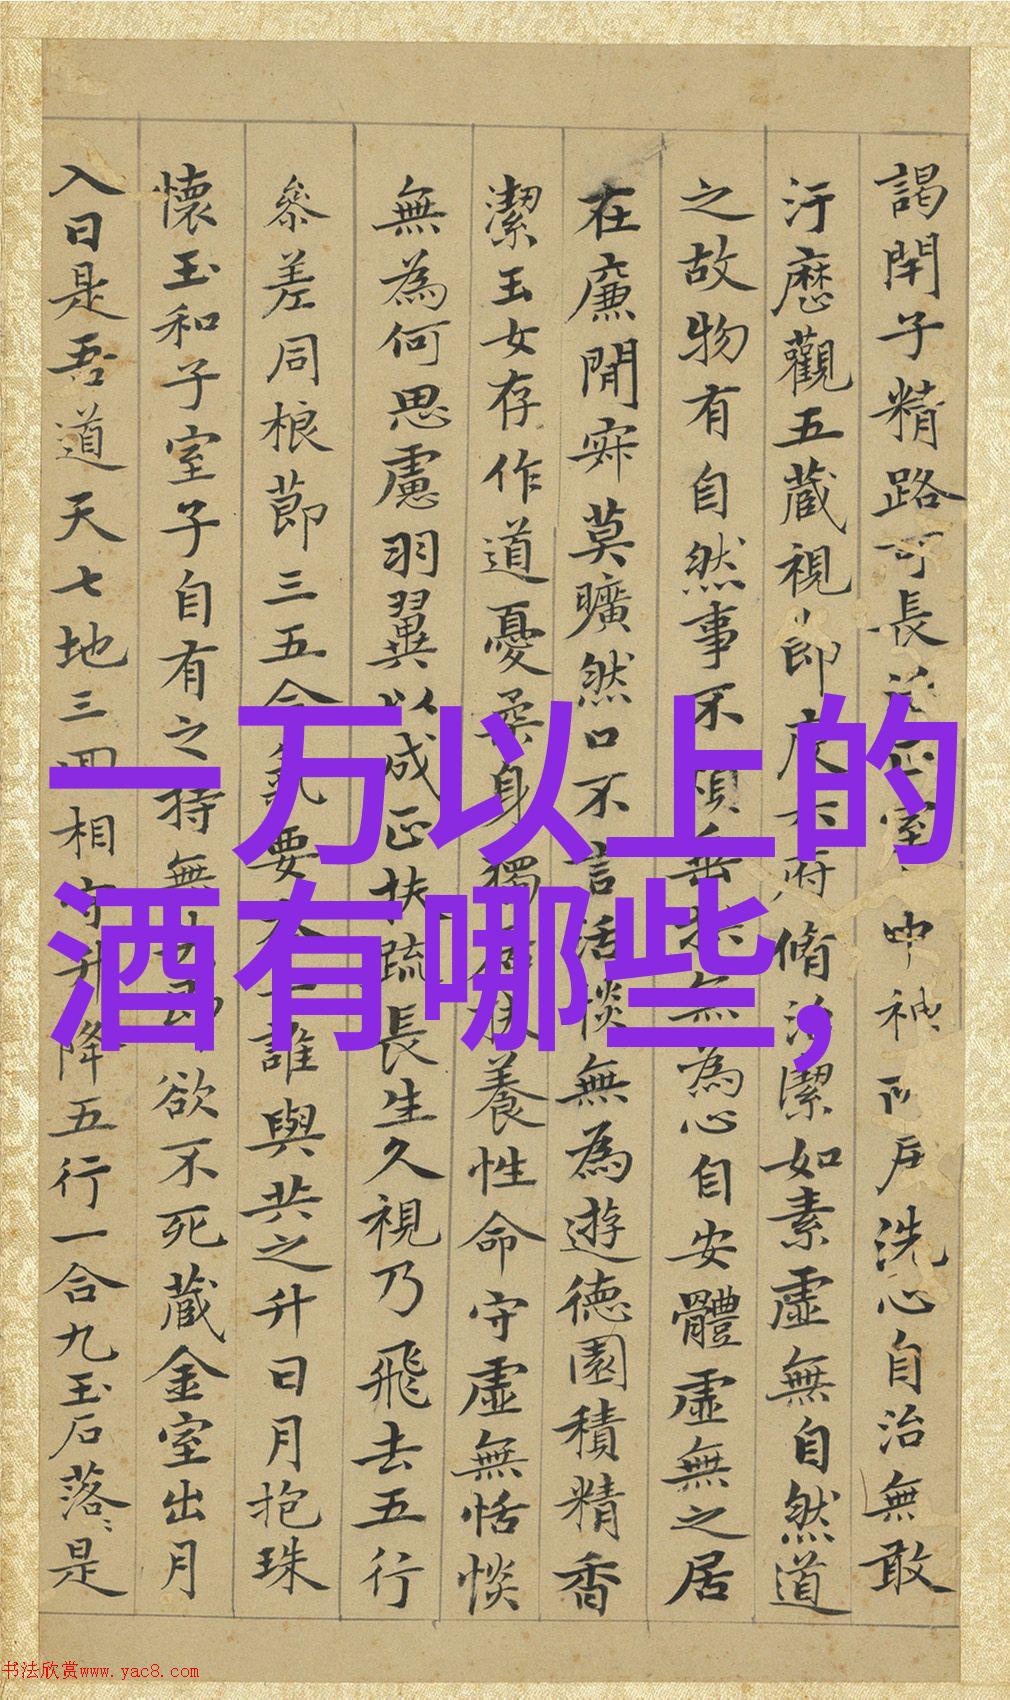 謁閇子精路可長
洗心自治無敢
汙歷觀五藏視
府脩治潔如素虛無自然道
之故物有自然事不煩
無為心自安體虛無之居
在廉閒寂莫曠然口不言活惔無為遊德園積精香
潔玉女存作道憂柔身獨
養性命守虛無恬惔
無為何思慮羽翼以成正扶疏長生久視乃飛去五行
參差同根節三五合氣要本一誰與共之升日月抱珠
懷玉和子室子自有之持無
欲不死藏金室出月
入日是吾道天七地三回相守升降五行一合九玉石落〻是
一万以上的
酒有哪些,
书法欣赏www.yac8.com